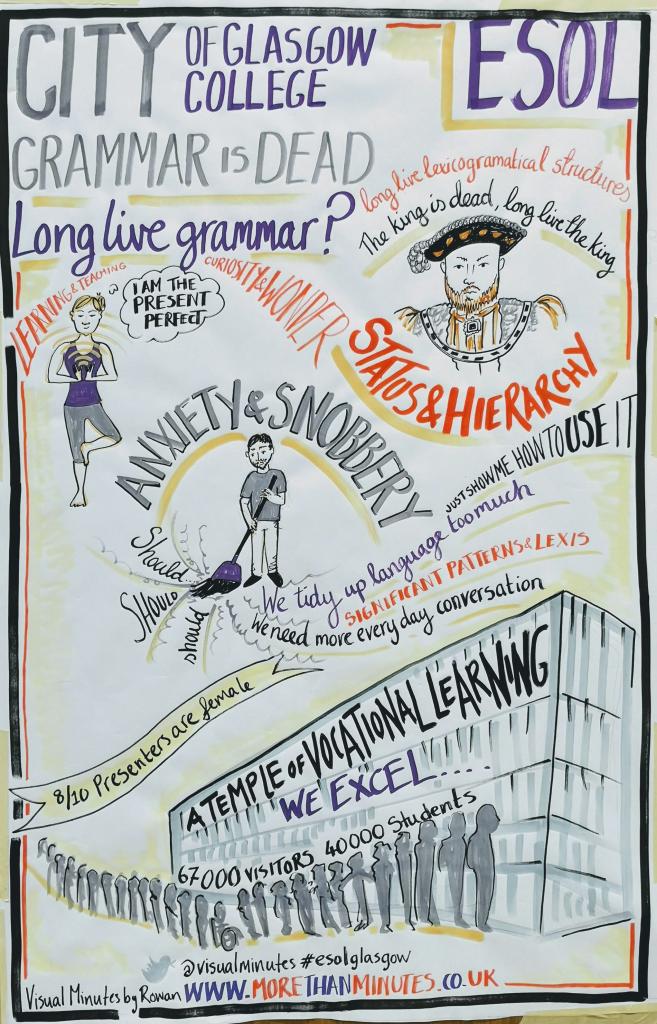 CITY
OF GLASGOW
COLLEGE
ESOL
GRAMMAR IS DEAD
Long live grammar?
long live lexicogramatical structures
The king is dead, long live the king
LEARNING & TEACHING
I AM THE
PRESENT
PERFECT
CURIOSITY & WONDER
STATUS & HIERARCHY
ANXIETY & SNOBBERY
JUST SHOW ME HOW TO USE IT
Should
SHOULD
should
We tidy up language too much
SIGNIFICANT PATTERNS & LEXIS
We need more every day conversation
8/10 Presenters are female
A TEMPLE OF VOCATIONAL LEARNING
WE EXCEL....
67000 VISITORS 40000 Students
@visualminutes #esolglasgow
Visual Minutes by Rowan WWW.MORETHANMINUTES.CO.UK